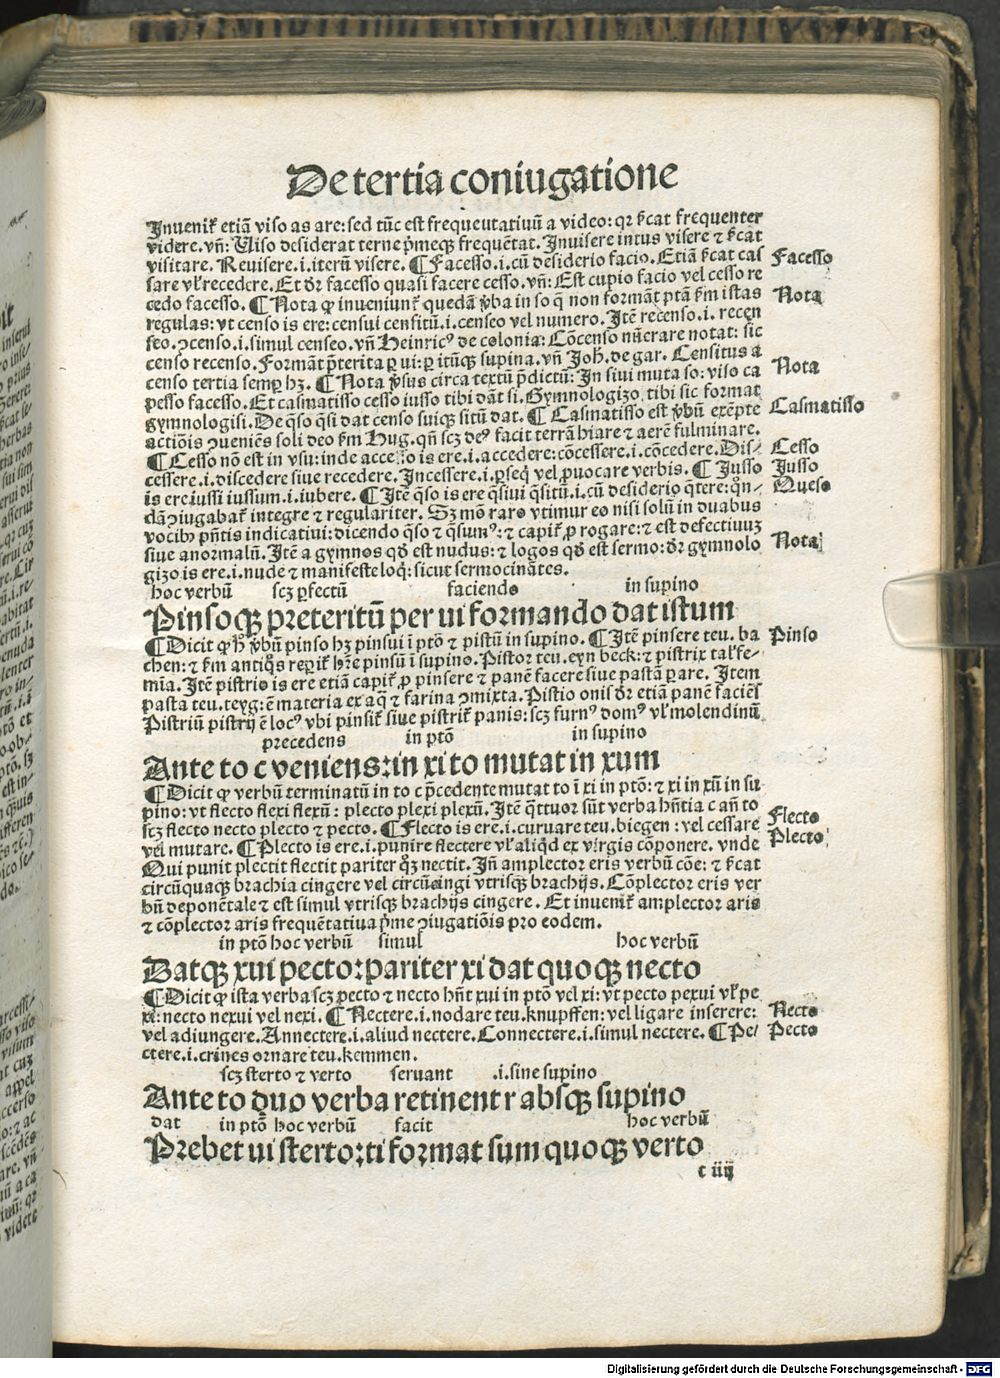 De tertia coniugatione
Inuenit᷑ etiã viso as are: sed tũc est frequeutatiuũ a video: qꝛ ẜcat frequenter
videre. vñ: Uiso desiderat terne p̃meqꝫ frequẽtat. Inuisere intus visere ⁊ ẜcat
visitare. Reuisere .i. iterũ visere. ¶ Facesso .i. cũ desiderio facio. Etiã ẜcat cas
sare vl᷑ recedere. Et dꝛ facesso quasi facere cesso. vñ: Est cupio facio vel cesso re
cedo facesso. ¶ Nota ꝙ inueniunt᷑ quedã v̓ba in so q̃ non formãt ptã ẜm istas
regulas: vt censo is ere: censui censitũ .i. censeo vel numero. Itẽ recenso .i. recen
seo. ꝯcenso .i. simul censeo. vñ Heinricꝰ de colonia: Cõcenso nũerare notat: sic
censo recenso. Formãt p̃terita ꝑ ui: ꝑ itũqꝫ supina. vñ Joh̃. de gar. Censitus a
censo tertia semꝑ hꝫ. ¶ Nota v̓sus circa textũ p̃dictũ: In siui muta so: viso ca
pesso facesso. Et casmatisso cesso iusso tibi dãt si. Gymnologizo tibi sic format
gymnologisi. De q̃so q̃si dat censo suiqꝫ sitũ dat. ¶ Casmatisso est v̓bũ exẽpte
actiõis ꝯueniẽs soli deo ẜm Hug. qñ scꝫ deꝰ facit terrã hiare ⁊ aerẽ fulminare.
¶ Cesso nõ est in vsu: inde accesso is ere .i. accedere: cõcessere .i. cõcedere. Dis⸗
cessere .i. discedere siue recedere. Incessere .i. ꝑseq̃ vel ꝓuocare verbis. ¶ Jusso
is ere iussi iussum .i. iubere. ¶ Itẽ q̃so is ere q̃siui q̃sitũ .i. cũ desiderio q̃rere: qñ⸗
dã ꝯiugabat᷑ integre ⁊ regulariter. Sꝫ mõ raro vtimur eo nisi solũ in duabus
vocibꝰ pñtis indicatiui: dicendo q̃so ⁊ q̃sumꝰ: ⁊ capit᷑ ꝓ rogare: ⁊ est defectiuuꝫ
siue anormalũ. Itẽ a gymnos qđ est nudus: ⁊ logos qđ est sermo: dꝛ gymnolo
gizo is ere .i. nude ⁊ manifeste loq̃: sicut sermocinãtes.
hoc verbũ scꝫ ꝑfectũ faciendo in supino
Pinsoqꝫ preteritũ per ui formando dat istum
¶ Dicit ꝙ h̓ v̓bũ pinso hꝫ pinsui ĩ ptõ ⁊ pistũ in supino. ¶ Itẽ pinsere teu. ba
chen: ⁊ ẜm antiq̃s reꝑit᷑ hr̃e pinsũ ĩ supino. Pistor teu. eyn beck: ⁊ pistrix tal᷑ fe⸗
mĩa. Itẽ pistrio is ere etiã capit᷑ ꝓ pinsere ⁊ panẽ facere siue pastã ꝑare. Item
pasta teu. teyg: ẽ materia ex aq̃ ⁊ farina ꝯmixta. Pistio onis dꝛ etiã panẽ faciẽs
Pistriũ pistrij ẽ locꝰ vbi pinsit᷑ siue pistrit᷑ panis: scꝫ furnꝰ domꝰ vl᷑ molendinũ
precedens in ptõ in supino
Ante to c veniens: in xi to mutat in xum
¶ Dicit ꝙ verbũ terminatũ in to c p̃cedente mutat to ĩ xi in ptõ: ⁊ xi in xũ in su
pino: vt flecto flexi flexũ: plecto plexi plexũ. Itẽ q̃ttuor sũt verba hñtia c añ to
scꝫ flecto necto plecto ⁊ pecto. ¶ Flecto is ere .i. curuare teu. biegen: vel cessare
vel mutare. ¶ Plecto is ere .i. punire flectere vl᷑ aliqd̓ ex virgis cõponere. vnde
Qui punit plectit flectit pariter qꝫ nectit. Iñ amplector eris verbũ cõe: ⁊ ẜcat
circũquaqꝫ brachia cingere vel circũcingi vtrisqꝫ brachijs. Cõplector eris ver
bũ deponẽtale ⁊ est simul vtrisqꝫ brachijs cingere. Et inuenit᷑ amplector aris
⁊ cõplector aris frequẽtatiua p̃me ꝯiugatiõis pro eodem.
in ptõ hoc verbũ simul hoc verbũ
Datqꝫ xui pecto: pariter xi dat quoqꝫ necto
¶ Dicit ꝙ ista verba scꝫ pecto ⁊ necto hñt xui in ptõ vel xi: vt pecto pexui vl᷑ pe
xi: necto nexui vel nexi. ¶ Nectere .i. nodare teu. knupffen: vel ligare inserere:
vel adiungere. Annectere .i. aliud nectere. Connectere .i. simul nectere. ¶ Pe⸗
ctere .i. crines ornare teu. kemmen.
scꝫ sterto ⁊ verto seruant .i. sine supino
Ante to duo verba retinent r absqꝫ supino
dat in ptõ hoc verbũ facit hoc verbũ
Prebet ui sterto: ti format sum quoqꝫ verto
c iiij
Facesso
Nota
Nota
Casmatisso
Cesso
Jusso
Queso
Nota
Pinso
Flecto
Plecto
Necto
Pecto
Digitalisierung gefördert durch die Deutsche Forschungsgemeinschaft - DFG